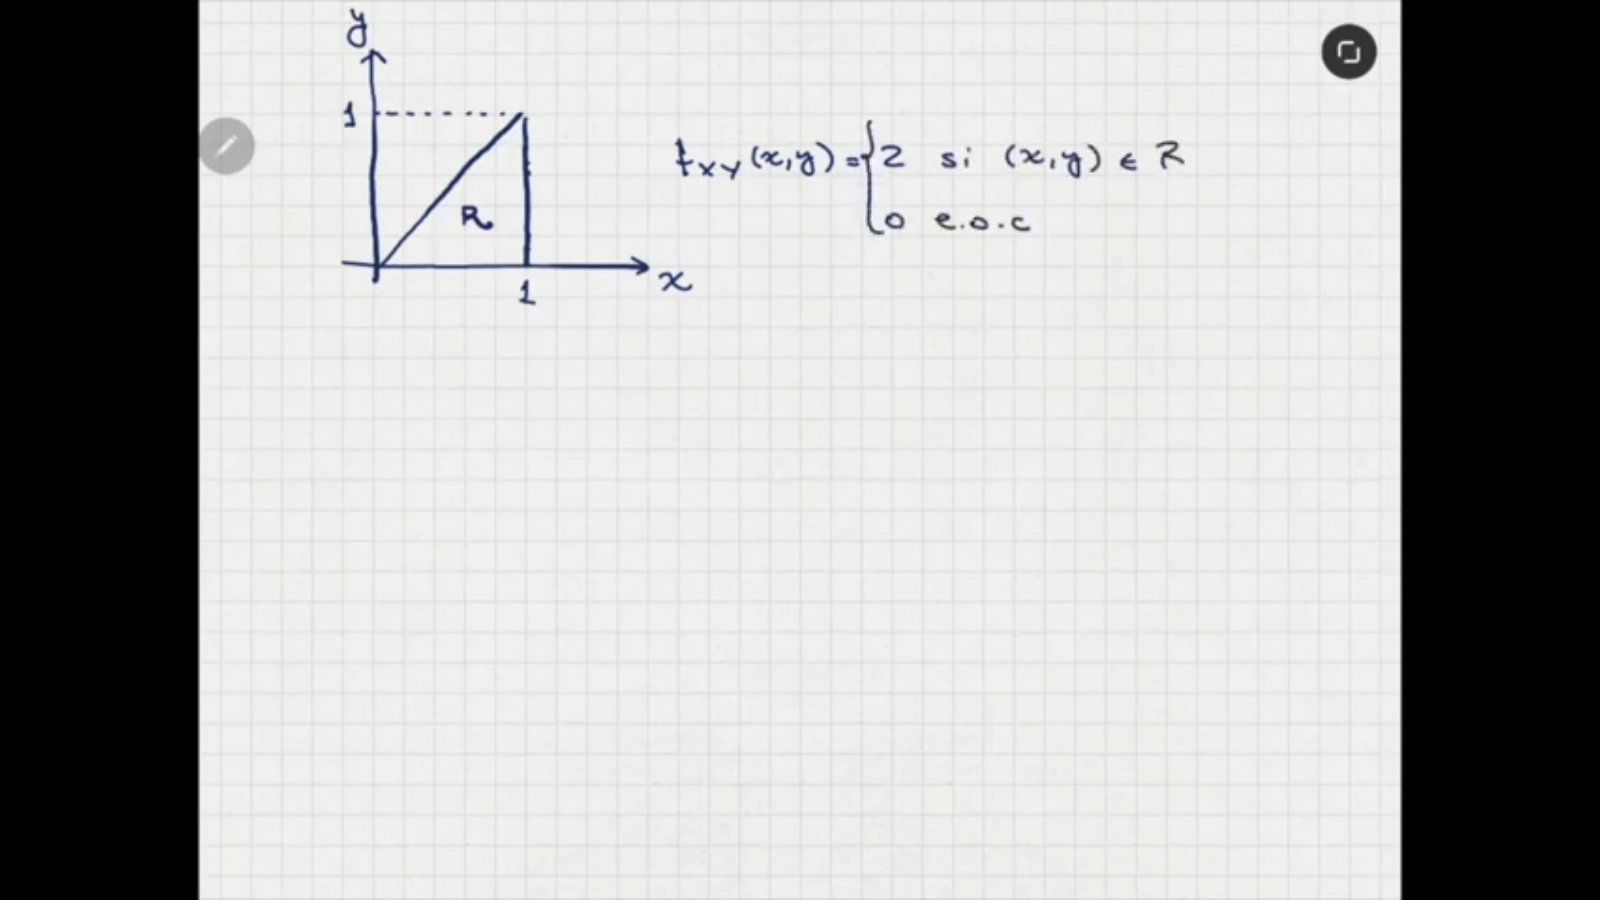 y
1
R
1
x
f_XY(x,y) = { 2 si (x,y) ∈ R
0 e.o.c